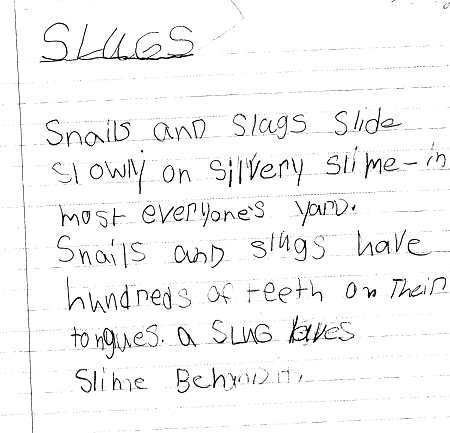 SLUGS
Snails and Slags Slide
Slowly on Silvery slime-in
most everyone's yard.
Snails and slugs have
hundreds of teeth on Their
tongues. a SLUG leaves
Slime Behind it.